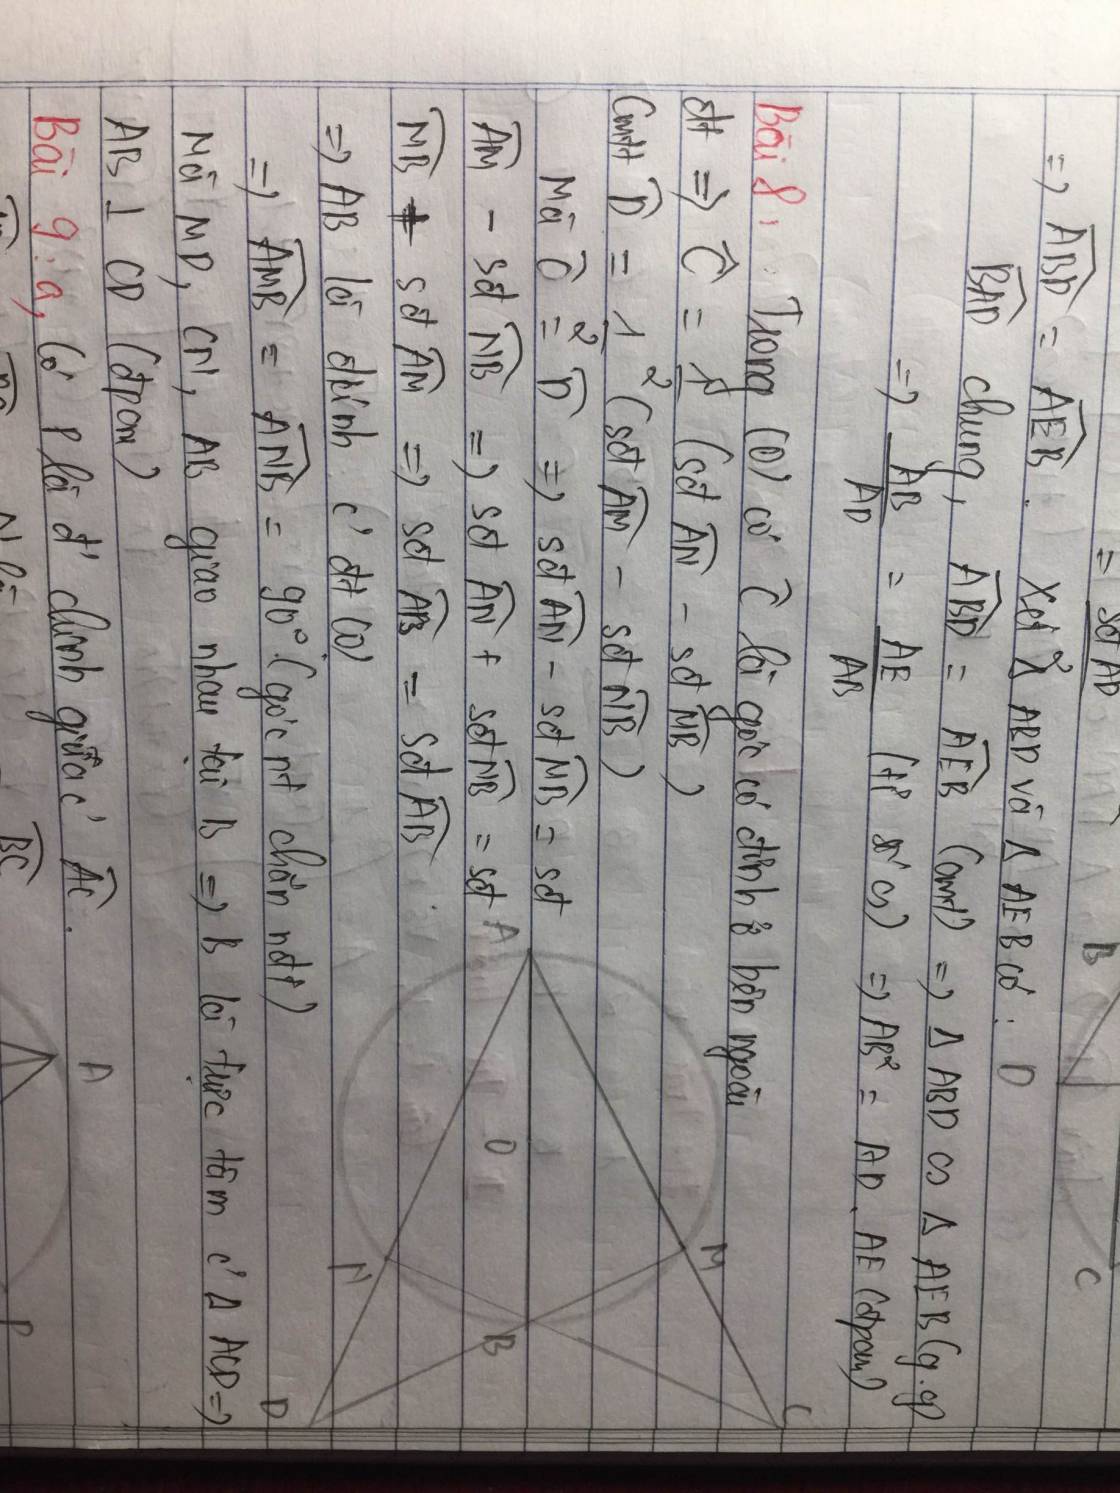 = sđ AD
⇒ ABD = AEB . Xét Δ ABD và Δ AEB có :
BAD chung, ABD = AEB (cmt) ⇒ Δ ABD ∽ Δ AEB (g.g)
⇒ AB/AD = AE/AB (tỉ số ∽) ⇒ AB² = AD . AE (đpcm)
Bài 8 : Trong (O) có C là góc có đỉnh ở bên ngoài
đt ⇒ C = 1/2 (sđ AN − sđ MB)
Cmtt D = 1/2 (sđ AM − sđ NB)
Mà C = D ⇒ sđ AN − sđ MB = sđ
AM − sđ NB ⇒ sđ AN + sđ NB = sđ
MB + sđ AM ⇒ sđ AB = sđ AB
⇒ AB là đkính c' đt (O)
⇒ AMB = ANB = 90° (góc nt chắn nđt)
Mà MD, CN, AB giao nhau tại B ⇒ B là trực tâm c' Δ ACD ⇒
AB ⊥ CD (đpcm)
Bài 9 : a, Có P là đ' chính giữa c' AC .
BC
B
D
C
A
O
M
N
B
C
D
A
P